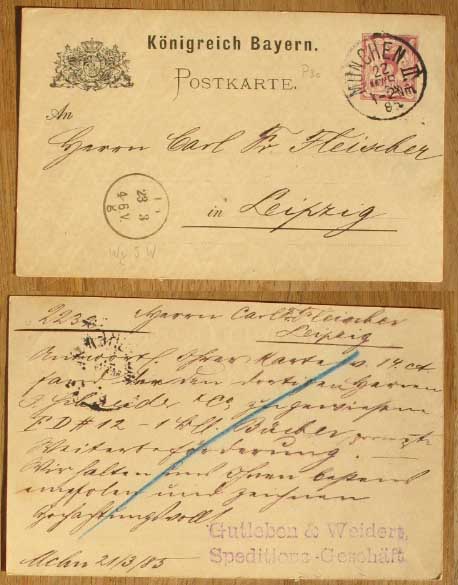 Königreich Bayern.
POSTKARTE.
P30
MÜNCHEN III
22
MÄR
An
Herrn Carl Fr. Fleischer
23 3
4-5 V.
in Leipzig
Wz 5 W
223 Herrn Carl Fr. Fleischer
Leipzig
Antwortl. Ihrer Karte v. 14. ct
den dortigen Herren
& Co zugewiesene
E D # 12 - 1 Bll. Bücher prompte
Weiterbeförderung. —
Wir halten uns Ihnen bestens
empfolen und zeichnen
hochachtungsvoll!
Gutleben & Weidert,
Speditions-Geschäft
Mchn 21/3/85